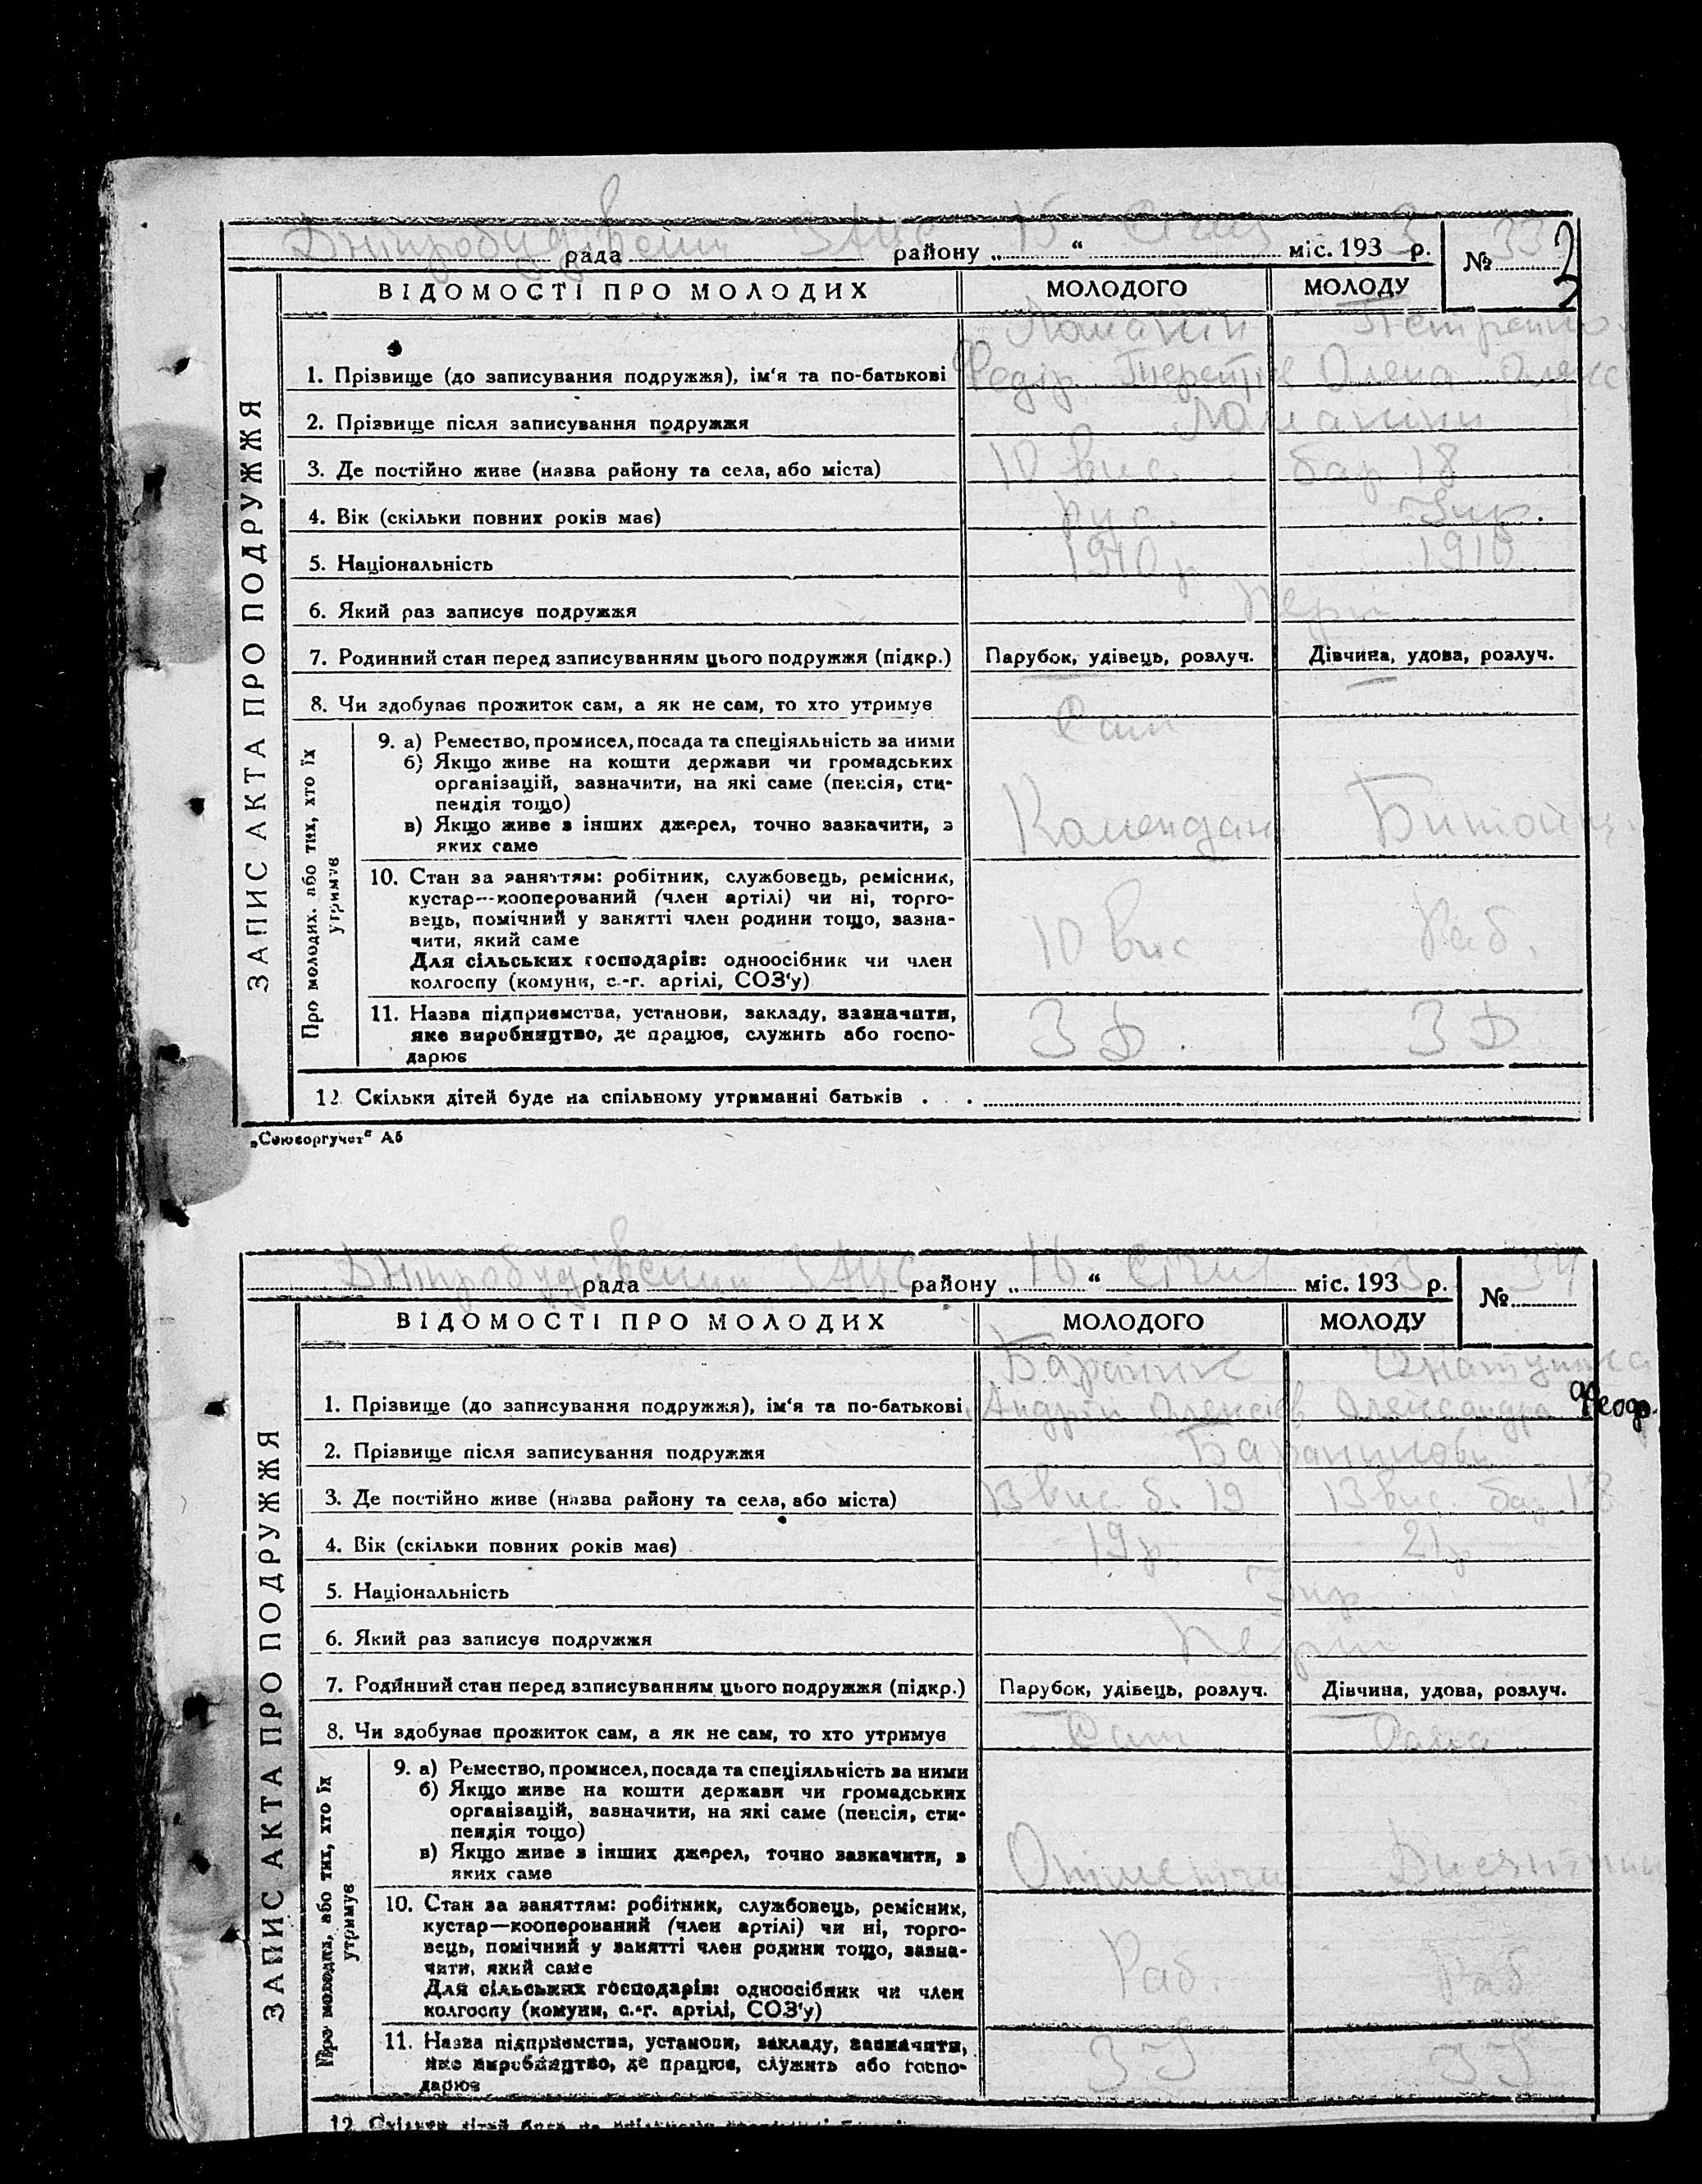 Дніпробудівський рада ЗАГС району „ 15 “ Січня міс. 193 3 р. № 33
2
ВІДОМОСТІ ПРО МОЛОДИХ МОЛОДОГО МОЛОДУ
ЗАПИС АКТА ПРО ПОДРУЖЖЯ
Ломакін Петренко
1. Прізвище (до записування подружжя), ім‘я та по-батькові Федір Олена Олекс
2. Прізвище після записування подружжя Ломакіни
3. Де постійно живе (назва району та села, або міста) 10 вис. бар 18
4. Вік (скільки повних років має) рус. Укр.
5. Національність 1910 р 1910
6. Який раз записує подружжя перш
7. Родинний стан перед записуванням цього подружжя (підкр.) Парубок, удівець, розлуч. Дівчина, удова, розлуч.
8. Чи здобуває прожиток сам, а як не сам, то хто утримує Сам
Про молодих, або тих, хто їх утримує
9. а) Ремество, промисел, посада та спеціяльність за ними
б) Якщо живе на кошти держави чи громадських
організацій, зазначити, на які саме (пенсія, сти-
пендія тощо)
в) Якщо живе з інших джерел, точно зазначити, з
яких саме
Комендан
10. Стан за заняттям: робітник, службовець, ремісник,
кустар—кооперований (член артілі) чи ні, торго-
вець, помічний у занятті член родини тощо, зазна-
чити, який саме
Для сільських господарів: одноосібник чи член
колгоспу (комуни, с.-г. артілі, СОЗ‘у)
10 вис Раб.
11. Назва підприємства, установи, закладу, зазначити,
яке виробництво, де працює, служить або госпо-
дарює
З Д. З Д
12 Скільки дітей буде на спільному утриманні батьків . . .
„Союзоргучет“ Аб
Дніпробудівський рада ЗАГС району „ 16 “ Січня міс. 193 3 р. № 34
ВІДОМОСТІ ПРО МОЛОДИХ МОЛОДОГО МОЛОДУ
ЗАПИС АКТА ПРО ПОДРУЖЖЯ
Бараник
1. Прізвище (до записування подружжя), ім‘я та по-батькові Андрій Олексіїв Олександра Феодр.
2. Прізвище після записування подружжя
3. Де постійно живе (назва району та села, або міста) 13 вис. б. 19 13 вис. бар 18
4. Вік (скільки повних років має) 19 р. 21 р
5. Національність Укр
6. Який раз записує подружжя Перш
7. Родинний стан перед записуванням цього подружжя (підкр.) Парубок, удівець, розлуч. Дівчина, удова, розлуч.
8. Чи здобуває прожиток сам, а як не сам, то хто утримує Сам Сама
Про молодих, або тих, хто їх утримує
9. а) Ремество, промисел, посада та спеціяльність за ними
б) Якщо живе на кошти держави чи громадських
організацій, зазначити, на які саме (пенсія, сти-
пендія тощо)
в) Якщо живе з інших джерел, точно зазначити, з
яких саме
10. Стан за заняттям: робітник, службовець, ремісник,
кустар—кооперований (член артілі) чи ні, торго-
вець, помічний у занятті член родини тощо, зазна-
чити, який саме
Для сільських господарів: одноосібник чи член
колгоспу (комуни, с.-г. артілі, СОЗ‘у)
Раб. Раб
11. Назва підприємства, установи, закладу, зазначити,
яке виробництво, де працює, служить або госпо-
дарює